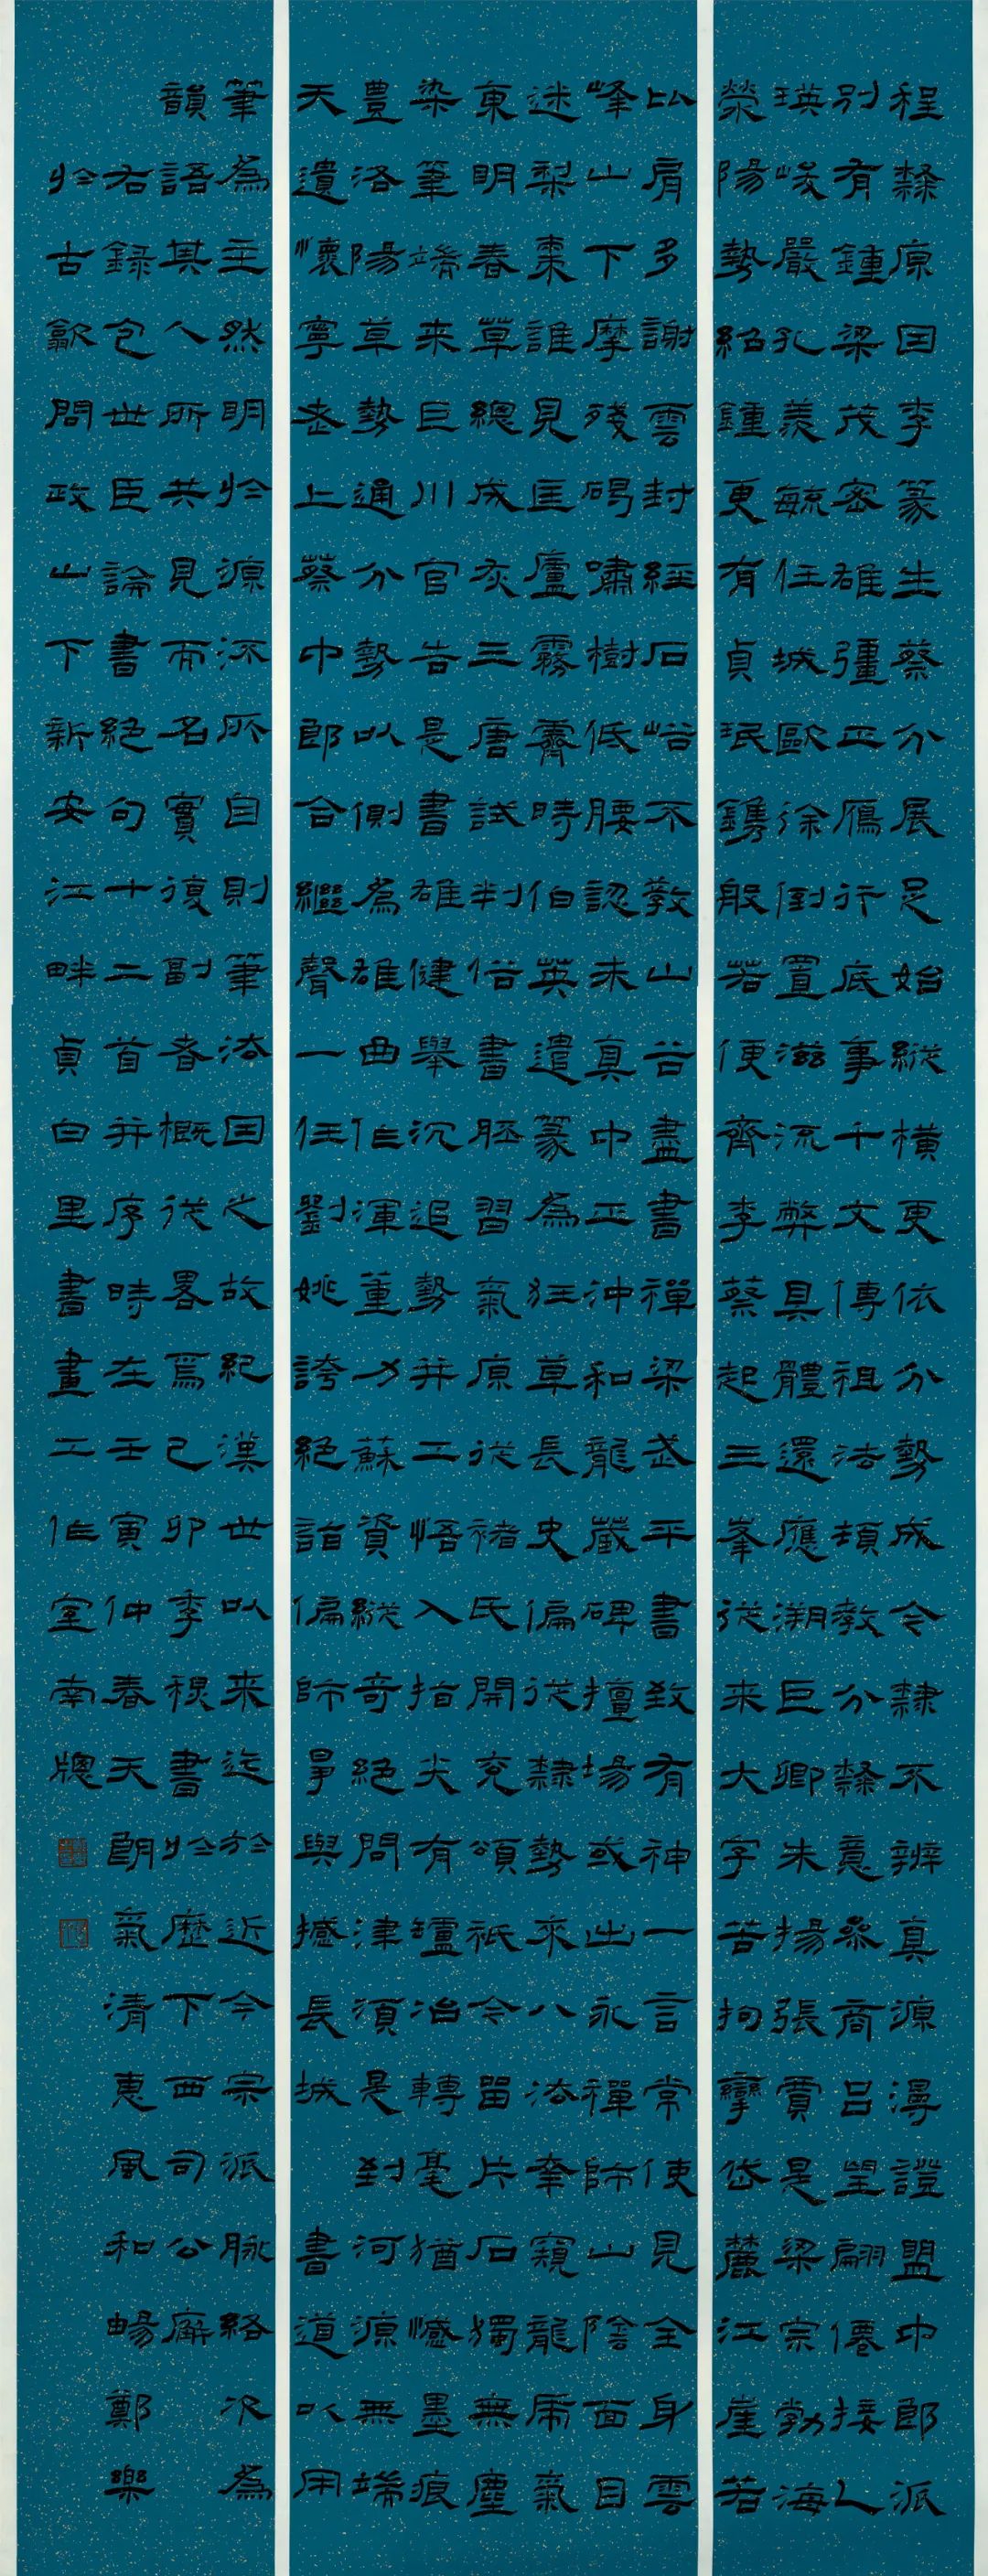 程隸原因李篆生蔡分展足始縱橫更依分勢成令隸不辨真源漫證盟中郎派
別有鍾梁茂密雄彊正鴈行底事千文傳祖法頓教分隸意參商呂望翩僊接乙
瑛峻嚴孔羨毓任城歐徐倒置滋流弊具體還應溯巨卿朱揚張賈是梁宗勃海
滎陽勢紹鍾更有貞珉鐫般若便齊李蔡起三峯從來大字苦拘攣岱麓江崖若
比肩多謝雲封經石峪不教山谷盡書禪梁武平書致有神一言常使見全身雲
峰山下摩殘碣嘯樹低腰認未真中正沖和龍藏碑擅場或出永禪師山陰面目
迷梨棗誰見匡廬霧霽時伯英遺篆為狂草長史偏從隸勢來八法牽窺龍虎氣
東明春草總成灰三唐試判俗書胚習氣原從褚氏開兗頌祇今留片石獨無塵
染筆端來巨川官告是書雄健舉沉追勢并工悟入指尖有罏冶轉毫猶憾墨痕
豊洛陽草勢通分勢以側為雄曲作渾董力蘇資縱奇絕問津須是到河源無端
天遺懷寧老上蔡中郎合繼聲一任劉姚誇絕詣偏師爭與撼長城 書道以用
筆為主然明於源流所自則筆法因之故紀漢世以來迄於近今宗派脈絡次為
韻語其人所共見而名實復副者概從畧焉己卯季秋書於歷下西司公廨
右錄包世臣論書絕句十二首并序時在壬寅仲春天朗氣清惠風和暢鄭樂
於古歙問政山下新安江畔貞白里書畫工作室南牕